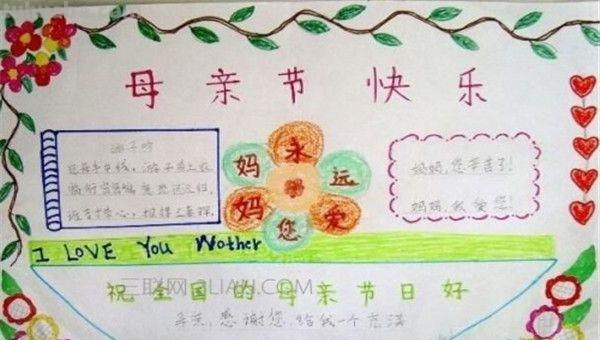 母亲节快乐
游子吟
慈母手中线，游子身上衣
临行密密缝 意恐迟迟归，
妈妈
永远
爱您
妈妈,您辛苦了!
妈妈,我爱您!
I LOVE You Wother
三联网 3LIAN.COM
祝全国的母亲节日好
感谢您,给我一个充满